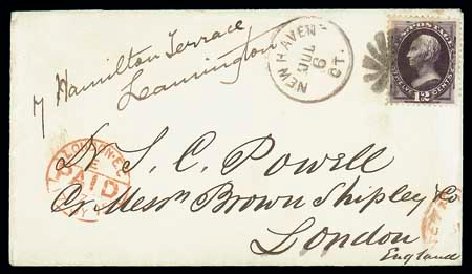 7 Hamilton Terrace
Leamington
NEW HAVEN
JUL
8
CT.
POSTAGE
TWELVE CENTS
12
LONDON
PAID
S. C. Powell
Messrs Brown Shipley & Co
London
England